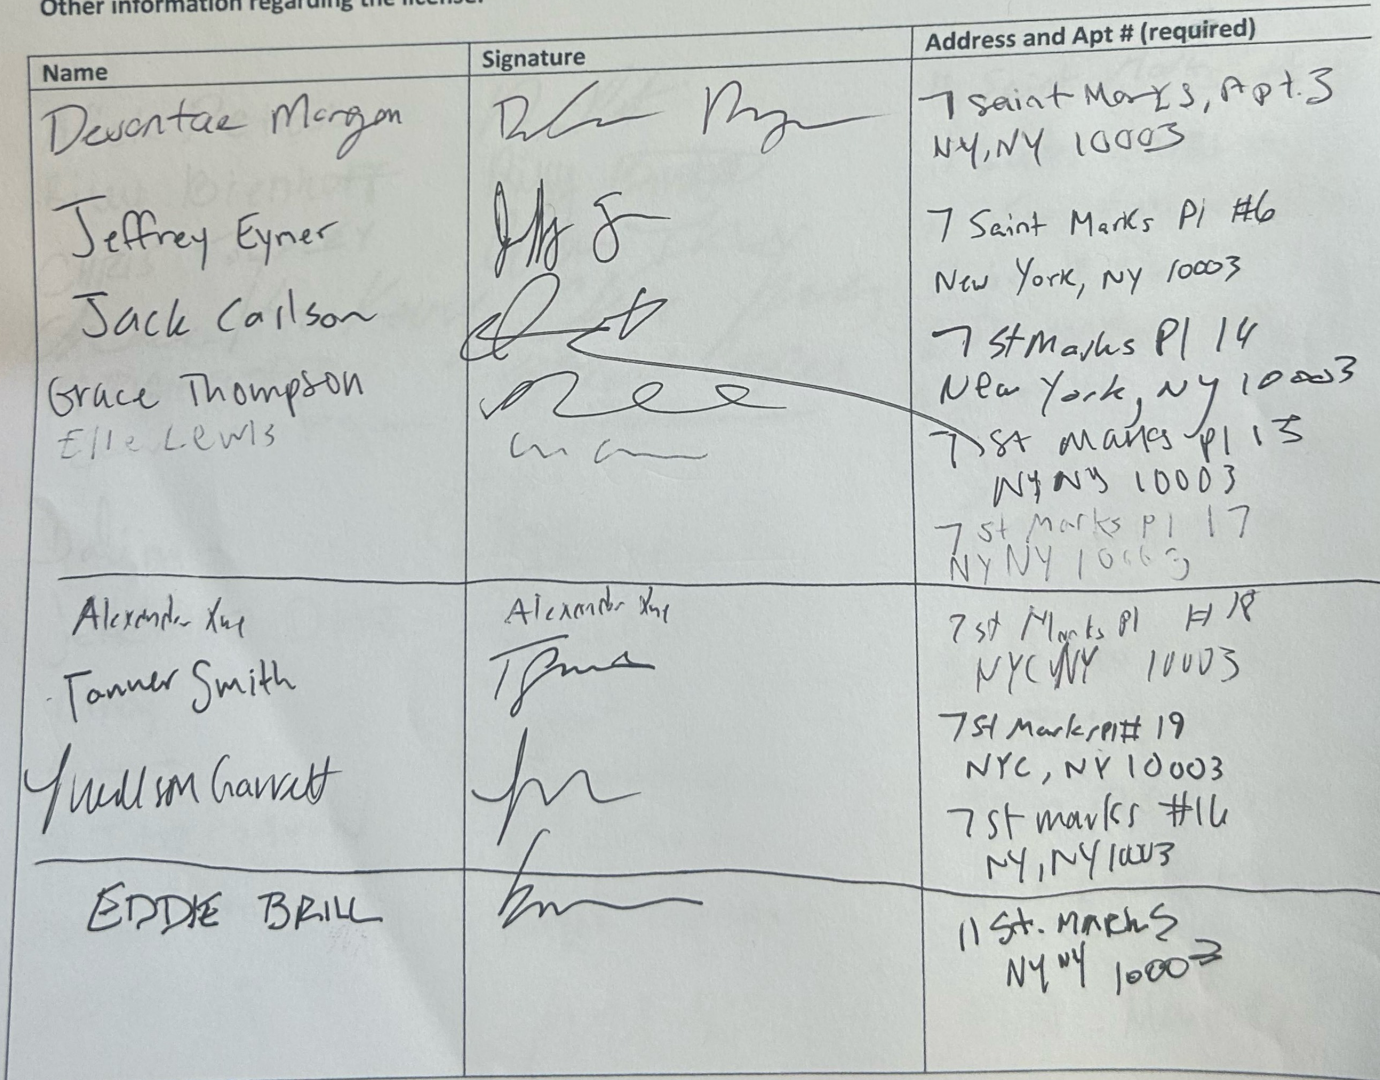 Other information regarding the license:
Name Signature Address and Apt # (required)
Devontae Morgan 7 Saint Marks, Apt. 3
NY, NY 10003
Jeffrey Eyner 7 Saint Marks Pl #6
New York, NY 10003
Jack Carlson 7 St Marks Pl 14
New York, NY 10003
Grace Thompson 7 St Marks Pl 15
NY NY 10003
Elle Lewis 7 St Marks Pl 17
NY NY 10003
Alexander Xue Alexander Xue 7 St Marks Pl # 18
NYC NY 10003
Tanner Smith 7 St Marks Pl # 19
NYC, NY 10003
Garrett 7 St marks #16
NY, NY 10003
EDDIE BRILL 11 St. MARKS
NY NY 10003